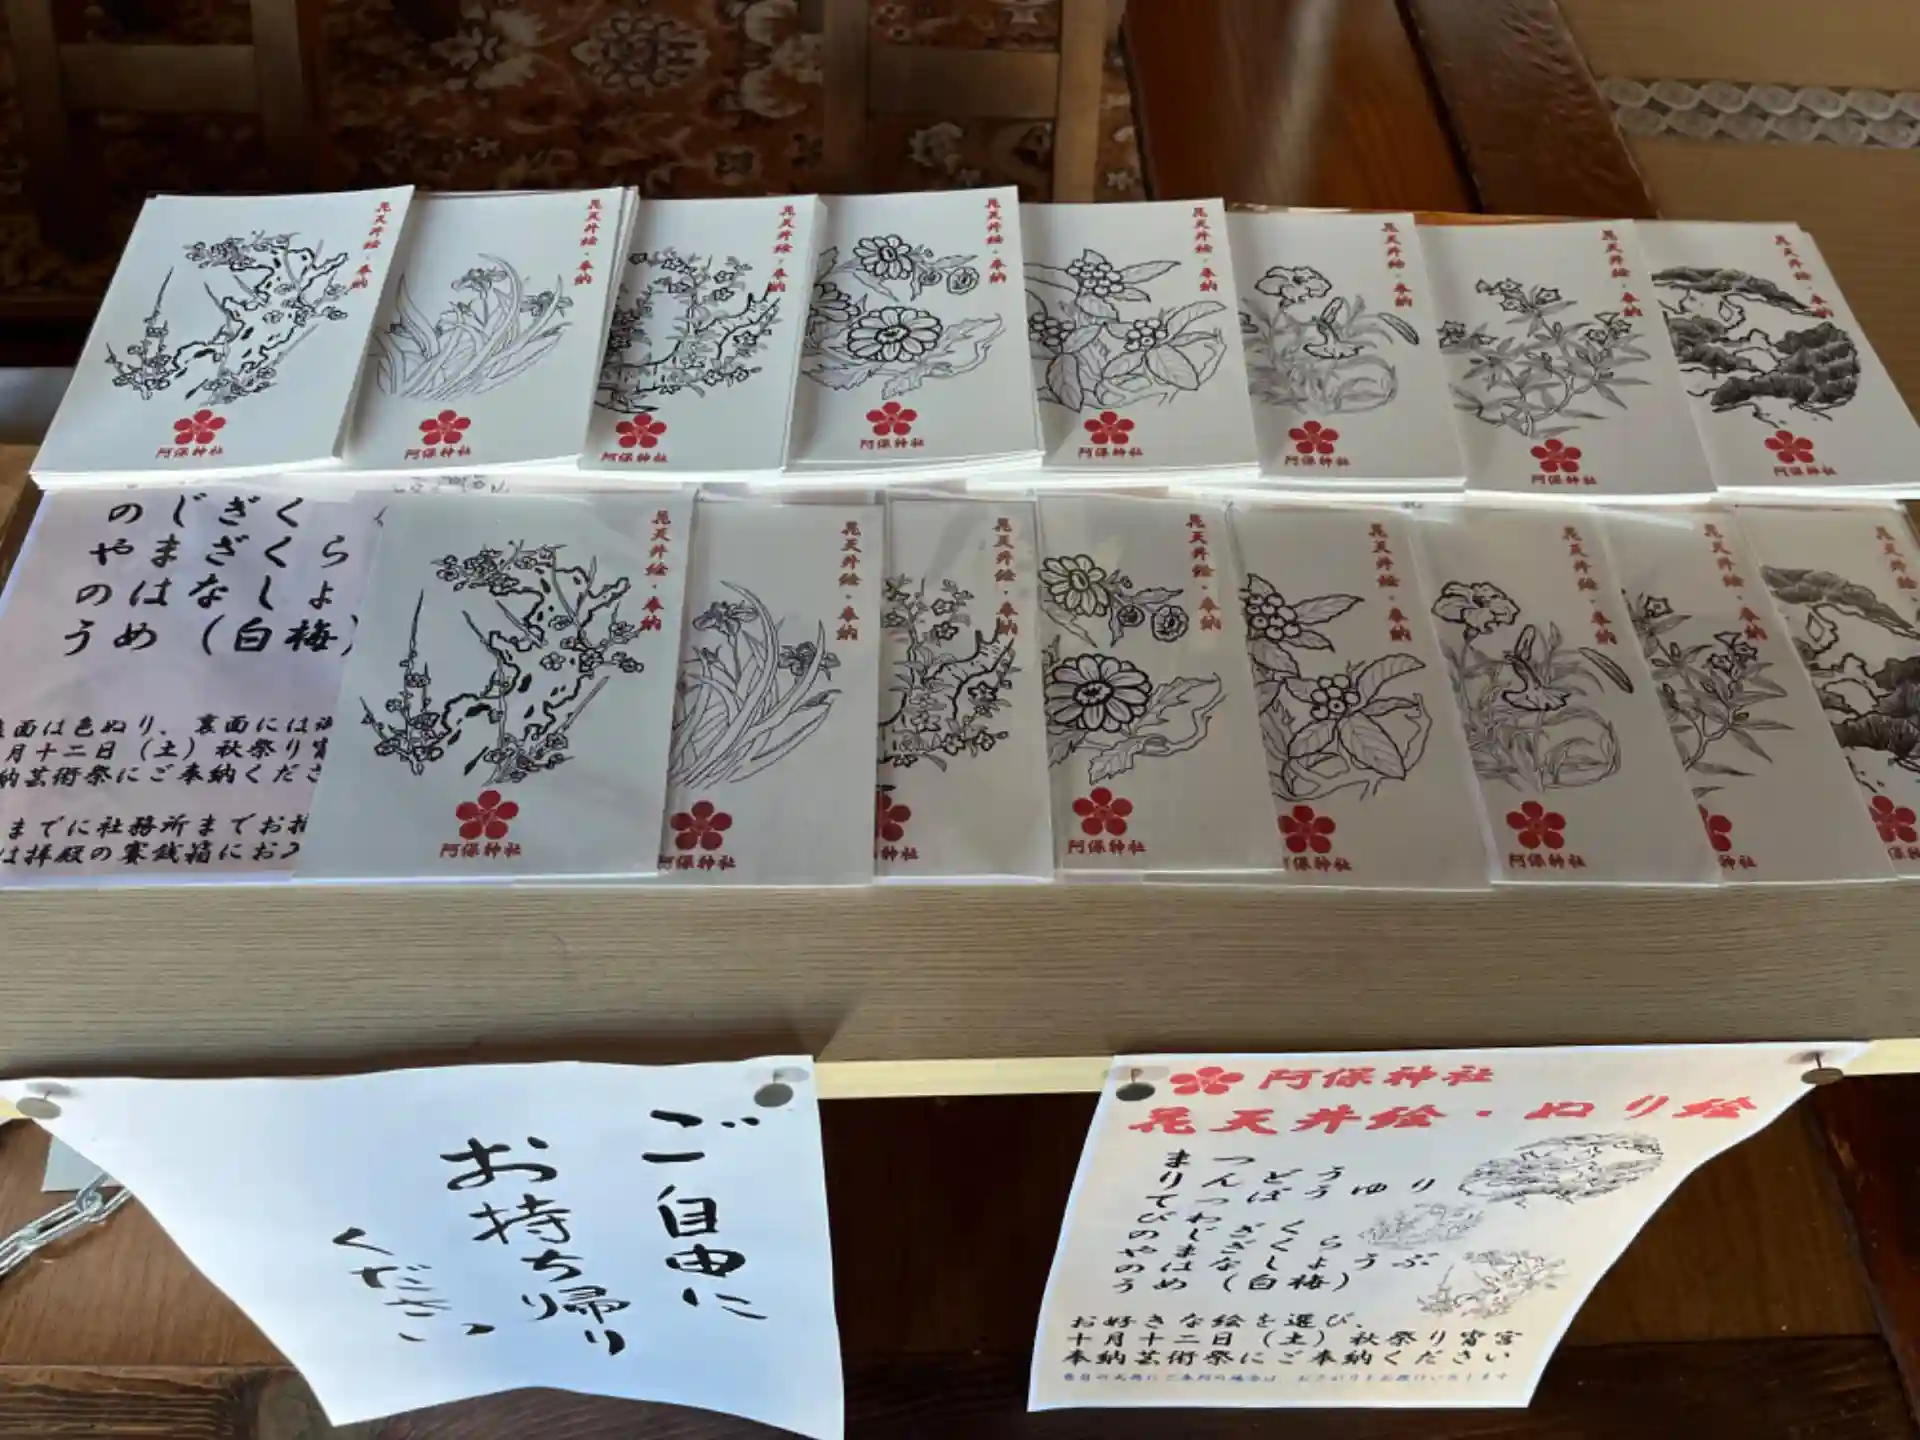 花天井絵・奉納
阿保神社
花天井絵・奉納
阿保神社
花天井絵・奉納
阿保神社
花天井絵・奉納
阿保神社
花天井絵・奉納
阿保神社
花天井絵・奉納
阿保神社
花天井絵・奉納
阿保神社
花天井絵・奉納
阿保神社
のじぎく
やまざくら
のはなしょ
うめ（白梅）
面は色ぬり、裏面には
月十二日（土）秋祭り宵
納芸術祭にご奉納くださ
までに社務所までお持
は拝殿の賽銭箱にお入
花天井絵・奉納
阿保神社
花天井絵・奉納
阿保神社
花天井絵・奉納
保神社
花天井絵・奉納
阿保神社
花天井絵・奉納
阿保神社
花天井絵・奉納
阿保神社
花天井絵・奉納
神社
花天井絵・奉納
ご自由に
お持ち帰り
ください
阿保神社
花天井絵・ぬり絵
まつ
りんどう
てっぽうゆり
びわ
のじぎく
やまざくら
のはなしょうぶ
うめ（白梅）
お好きな絵を選び、
十月十二日（土）秋祭り宵宮
奉納芸術祭にご奉納ください